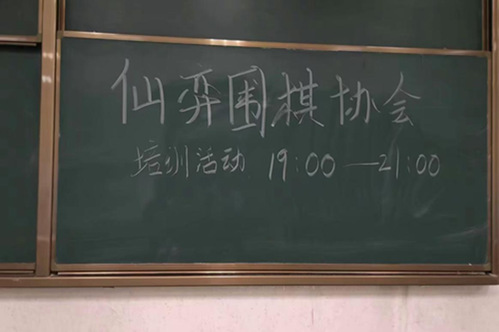 仙弈围棋协会
培训活动 19:00—21:00